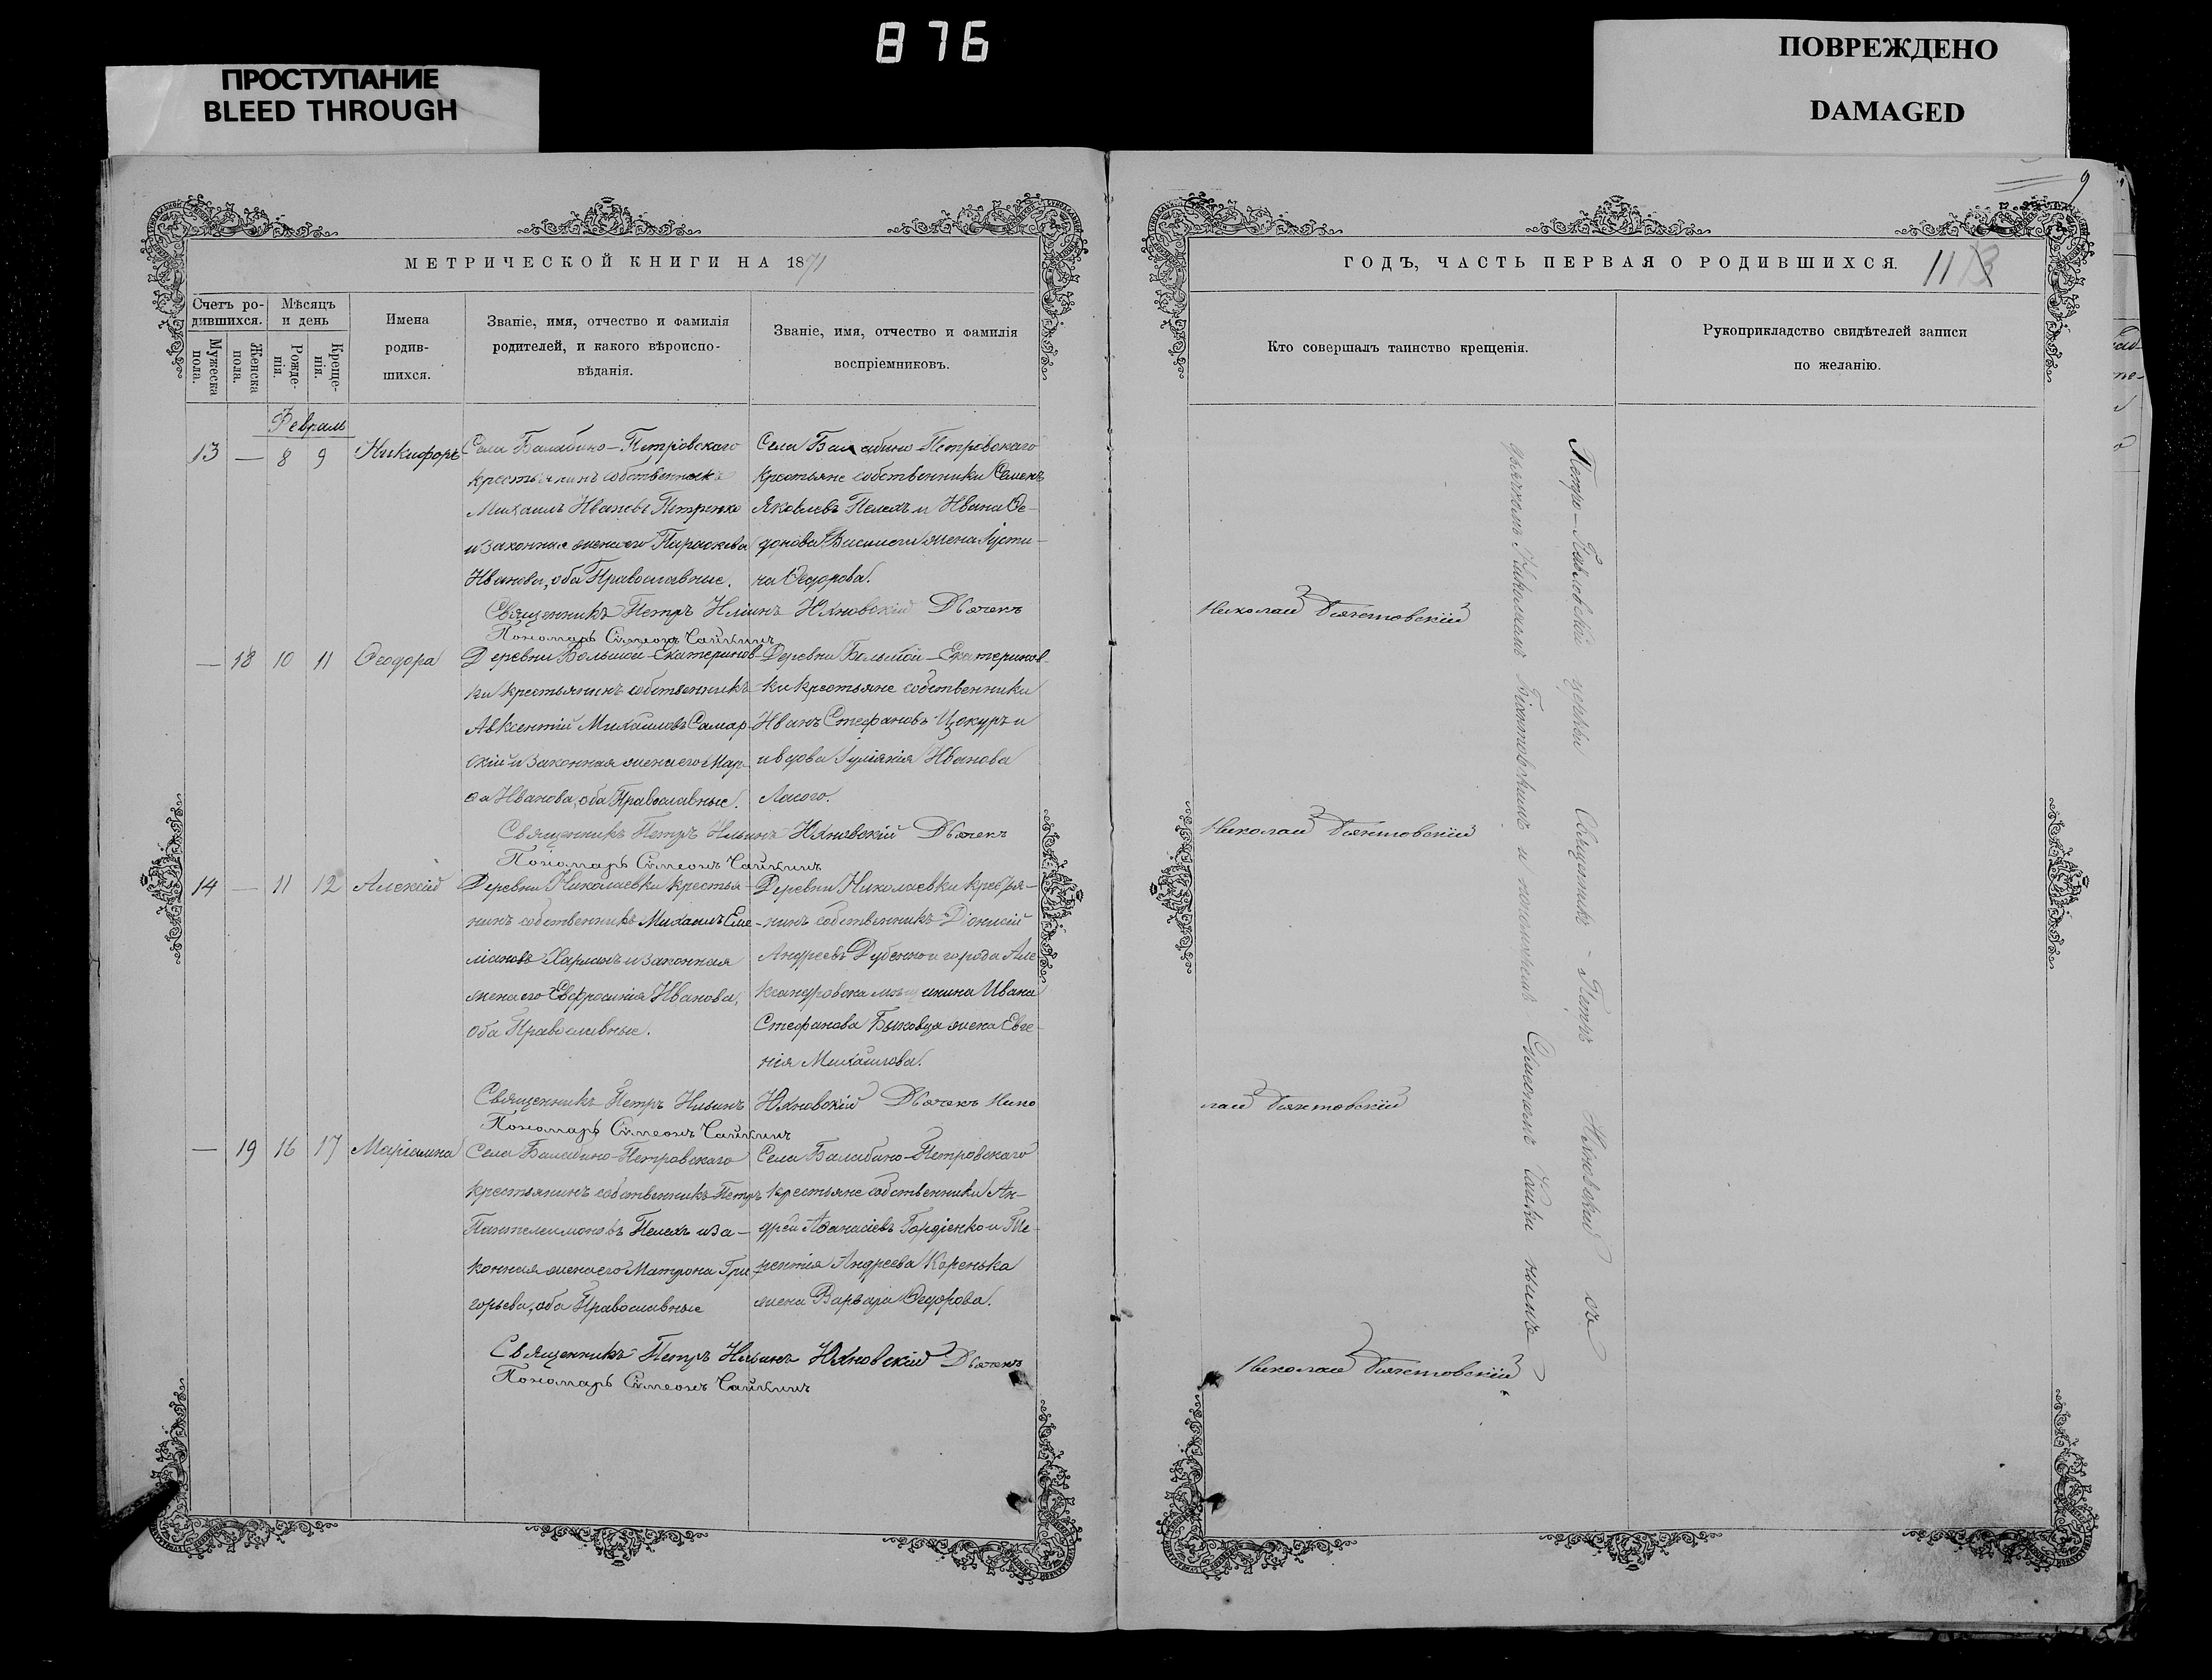 876
ПРОСТУПАНИЕ
BLEED THROUGH
ПОВРЕЖДЕНО
DAMAGED
9
МЕТРИЧЕСКОЙ КНИГИ НА 1871
Счетъ ро-
дившихся.
Мужеска
пола.
Женска
пола.
Мѣсяцъ
и день
Рожде-
нія.
Креще-
нія.
Имена
родив-
шихся.
Званіе, имя, отчество и фамилія
родителей, и какого вѣроиспо-
вѣданія.
Званіе, имя, отчество и фамилія
воспріемниковъ.
Февраль
13 — 8 9 Никифоръ
Села Балабино-Петровскаго
крестьянинъ собственникъ
Михаилъ Ивановъ Петренко
и законная жена его Параскева
Иванова, оба Православные.
Села Балабино-Петровскаго
крестьяне собственники Семенъ
Яковлевъ Пелехъ и Ивана Ѳе-
дорова жена Іусти-
на Ѳедорова.
Священникъ Петръ Ильинъ Юхновскій Дьячекъ
Пономарь Сѵмеонъ Чайкинъ
— 18 10 11 Ѳеодора
Деревни Большой-Екатеринов-
ки крестьянинъ собственникъ
Авксентій Михаиловъ Самар-
скій и законная жена его Мар-
ѳа Иванова, оба Православные.
Деревни Большой-Екатеринов-
ки крестьяне собственники
Иванъ Стефановъ Цокуръ и
вдова Іуліянія Иванова
Лысого.
Священникъ Петръ Ильинъ Юхновскій Дьячекъ
Пономарь Сѵмеонъ Чайкинъ
14 — 11 12 Алексій
Деревни Николаевки крестья-
нинъ собственникъ Михаилъ Еме-
ліановъ Харманъ и законная
жена его Евфросинія Иванова,
оба Православные.
Деревни Николаевки крестья-
нинъ собственникъ Діонисій
Андреевъ Дубенко и города Але
ксандровска мѣщанина Ивана
Стефанова Быковца жена Евге-
нія Михаилова.
Священникъ Петръ Ильинъ Юхновскій Дьячекъ Нико
Пономарь Сѵмеонъ Чайкинъ
— 19 16 17 Маріамна
Села Балабино-Петровскаго
крестьянинъ собственникъ Петръ
Пантелеимоновъ Пелехъ и за-
конная жена его Матрона Гри-
горьева, оба Православные
Села Балабино-Петровскаго
крестьяне собственники Ан-
дрей Аѳанасіевъ Гордіенко и Те-
рентія Андреева Коренька
жена Варвара Ѳедорова.
Священникъ Петръ Ильинъ Юхновскій Дьячекъ
Пономарь Сѵмеонъ Чайкинъ
ГОДЪ, ЧАСТЬ ПЕРВАЯ О РОДИВШИХСЯ.
11
Кто совершалъ таинство крещенія.
Рукоприкладство свидѣтелей записи
по желанію.
Петро-Павловской церкви Священникъ - Петръ Юхновскій съ
дьячкомъ Николаемъ и пономаремъ Сѵмеономъ Чайкинымъ
Николай
Николай
лай
Николай